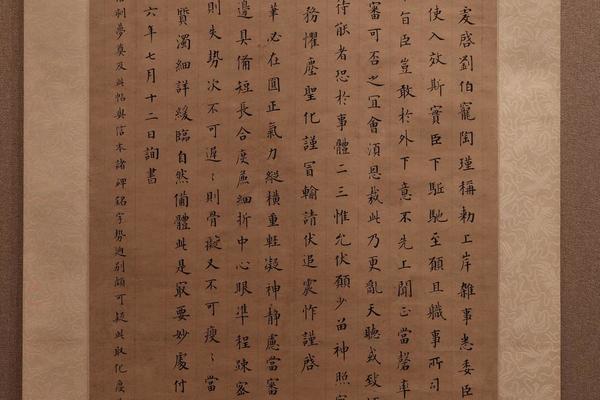 虔啓劉伯寵陶瑾稱勅上岸雜事悉委臣
使入效斯實臣下駈馳至願且職事所司
旨臣豈敢於外下意不先上聞正當罄率
審可否之宜會須恩裁此乃更亂天聽或致
待能者恐於事體二三惟允伏願少留神照
務懼塵聖化謹冒輸請伏追震怍謹啓
華必在圓正氣力縱橫重輕凝神靜慮當審
邊具備短長合度麁細折中心眼準程踈密
則失勢次不可遲遲則骨癡又不可瘦瘦當
質濁細詳緩臨自然備體此是最要妙處付
六年七月十二日詢書
夢奠及此帖與信本諸碑銘字勢逈別頗可疑此取化度